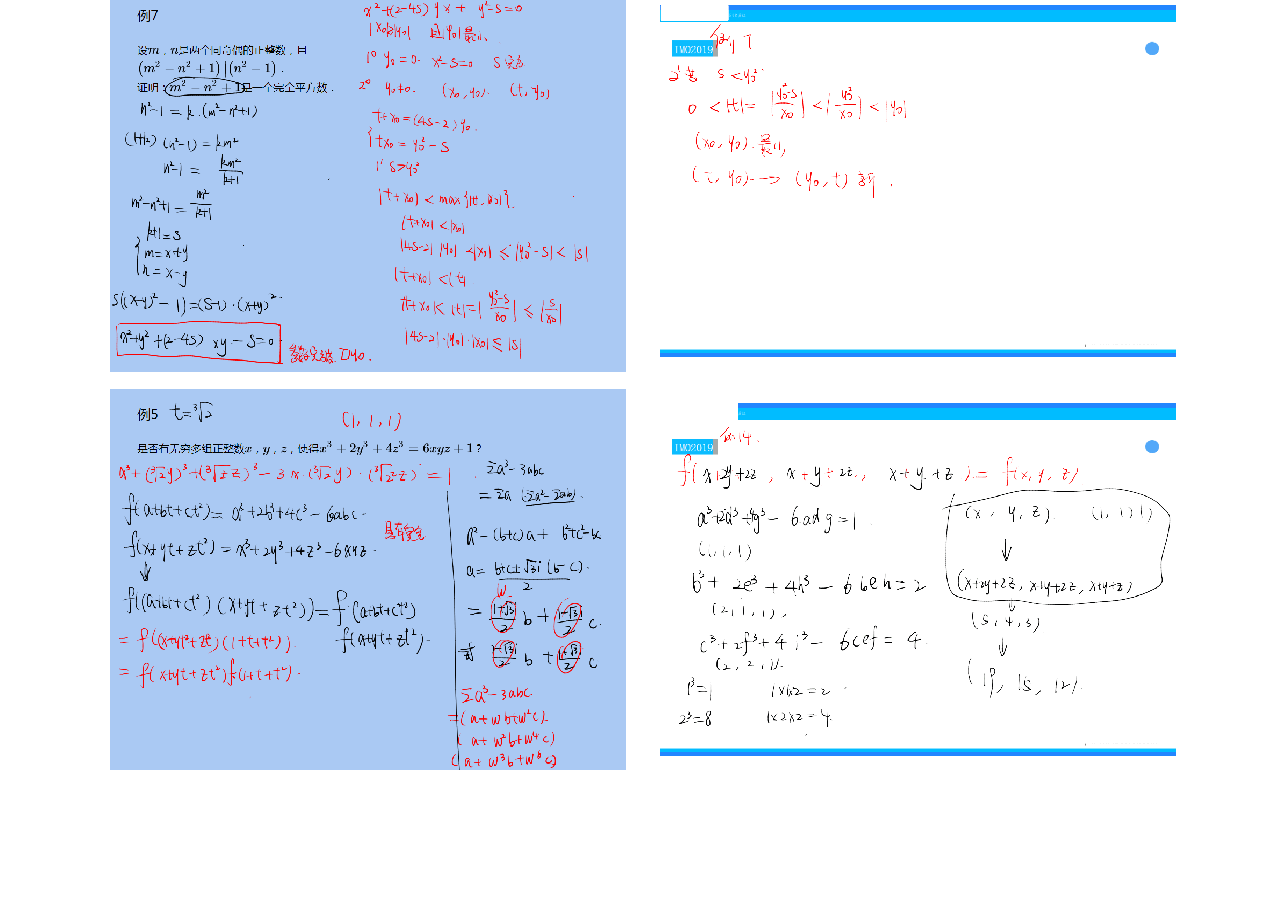 例7
设m，n是两个同奇偶的正整数，且
(m²−n²+1)|(n²−1)．
证明：m²−n²+1是一个完全平方数．
n²-1=k·(m²-n²+1)
(k+1)(n²-1)=km²
n²-1=km²/(k+1)
m²-n²+1=m²/(k+1)
k+1=s
m=x+y
n=x-y
s((x-y)²-1)=(s-1)·(x+y)²
x²+y²+(2-4s)xy-s=0
x²+(2-4s)yx+y²-s=0
|x₀|≥|y₀| 且|y₀|最小
1° y₀=0. x²-s=0
2° y₀≠0. (x₀,y₀). (t,y₀)
t+x₀=(4s-2)y₀.
tx₀=y₀²-s
1' s>y₀²
|t+x₀|<max{|t|,|x₀|}.
|t+x₀|<|x₀|
|4s-2||y₀|<|x₀|≤|y₀²-s|<|s|
|t+x₀|<|t|
|t+x₀|<|t|=|(y₀²-s)/x₀|≤|s/x₀|
|4s-2|·|y₀|·|x₀|≤|s|
IMO2019
2' 若 s<y₀²
0<|t|=|(y₀²-s)/x₀|<|y₀²/x₀|<|y₀|
(x₀,y₀).最小
(t,y₀)→(y₀,t)
例5 t=³√2
(1,1,1)
是否有无穷多组正整数x，y，z，使得x³+2y³+4z³=6xyz+1？
x³+(³√2y)³+(³√2²z)³-3x·(³√2y)·(³√2²z)=1
f(a+bt+ct²)=a³+2b³+4c³-6abc.
f(x+yt+zt²)=x³+2y³+4z³-6xyz.
↓
f((a+bt+ct²)(x+yt+zt²))=f(a+bt+ct²)
f(x+yt+zt²).
=f((x+yt+zt²)(1+t+t²)).
=f(x+yt+zt²)f(1+t+t²).
Σa³-3abc
=Σa(Σa²-Σab).
a²-(b+c)a+b²+c²-bc
a=(b+c±√3i(b-c))/2
w
=(1+√3)/2 b+(1-√3)/2 c.
或 (1-√3)/2 b+(1+√3)/2 c
Σa³-3abc.
=(a+wb+w²c).
(a+w²b+w⁴c)
(a+w³b+w⁶c)
IMO2019
f(x+2y+2z,x+y+2z,x+y+z)=f(x,y,z)
a³+2d³+4g³-6adg=1.
(1,1,1)
b³+2e³+4h³-6beh=2
(2,1,1),
c³+2f³+4i³-6cef=4.
(2,2,1).
1³=1 1×1×2=2
2³=8 1×2×2=4
(x,y,z) (1,1,1)
↓
(x+2y+2z,x+y+2z,x+y+z)
↓
(5,4,3)
↓
(19,15,12).